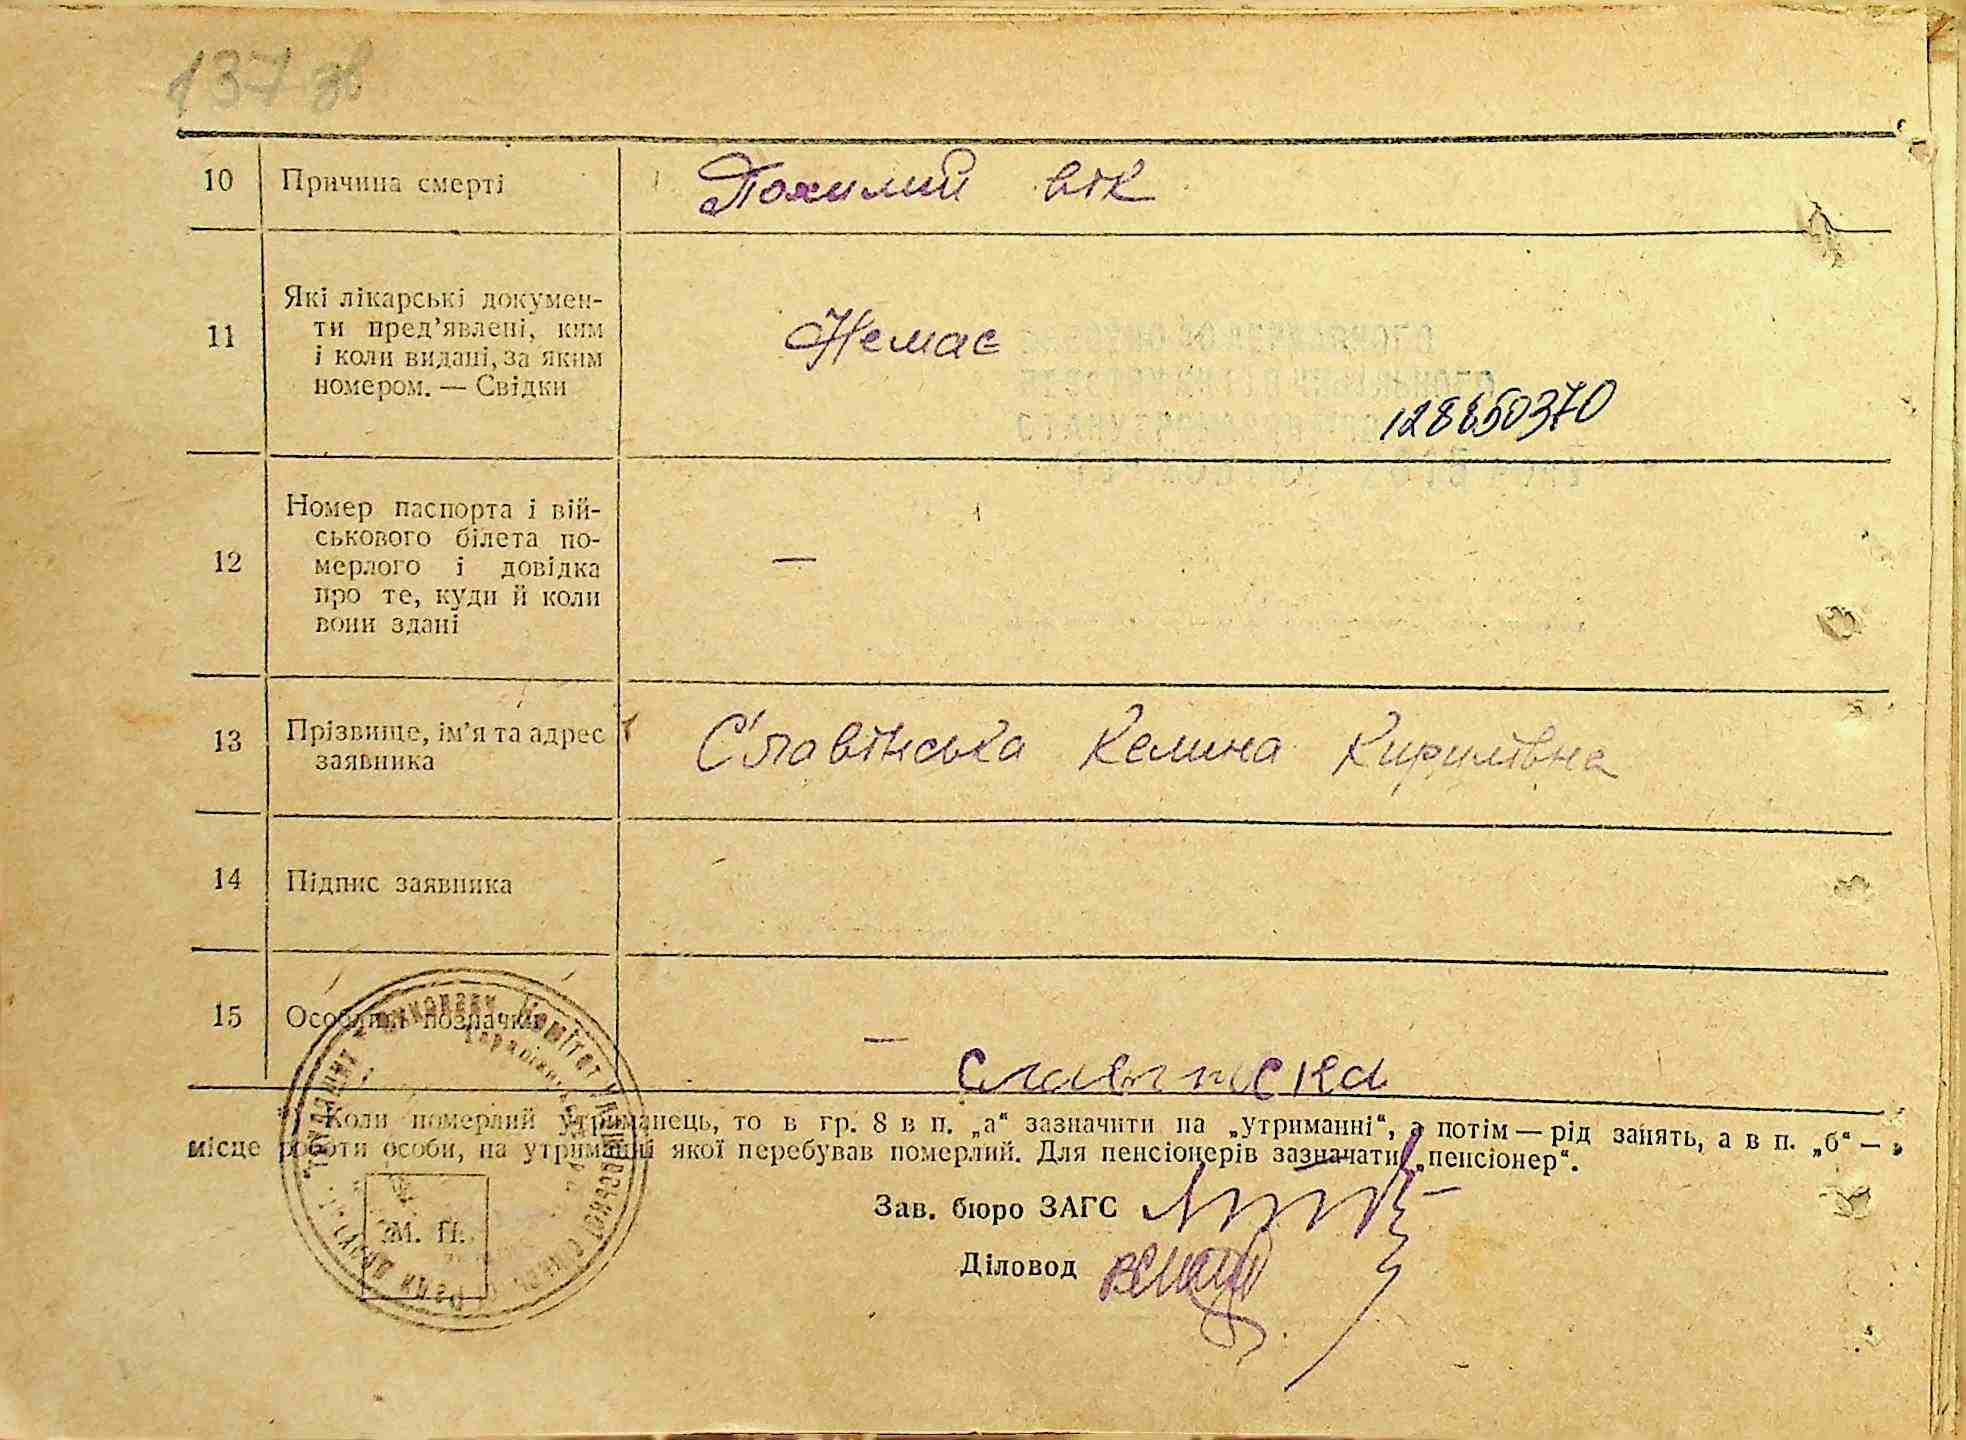 137 зв
10 Причина смерті Похилий вік
11 Які лікарські докумен-
ти пред'явлені, ким
і коли видані, за яким
номером. — Свідки
Немає
128650370
12 Номер паспорта і вій-
ськового білета по-
мерлого і довідка
про те, куди й коли
вони здані
—
13 Прізвище, ім'я та адрес
заявника
Славінська Келина Кирилівна
14 Підпис заявника
15 Особливі позначки
—
Славинска
*) Коли померлий утриманець, то в гр. 8 в п. „а“ зазначити на „утриманні“, а потім — рід занять, а в п. „б“ —
місце роботи особи, на утриманні якої перебував померлий. Для пенсіонерів зазначати „пенсіонер“.
Зав. бюро ЗАГС
Діловод
М. П.